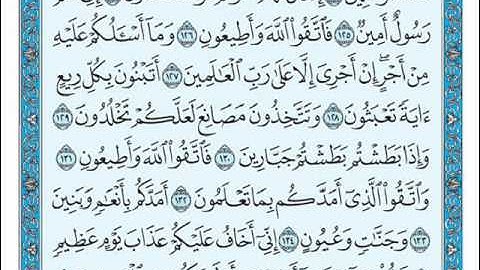 رَسُولٌ أَمِينٌ ١٢٥ فَٱتَّقُوا۟ ٱللَّهَ وَأَطِيعُونِ ١٢٦ وَمَآ أَسْـَٔلُكُمْ عَلَيْهِ
مِنْ أَجْرٍ ۖ إِنْ أَجْرِىَ إِلَّا عَلَىٰ رَبِّ ٱلْعَـٰلَمِينَ ١٢٧ أَتَبْنُونَ بِكُلِّ رِيعٍ
ءَايَةً تَعْبَثُونَ ١٢٨ وَتَتَّخِذُونَ مَصَانِعَ لَعَلَّكُمْ تَخْلُدُونَ ١٢٩
وَإِذَا بَطَشْتُم بَطَشْتُمْ جَبَّارِينَ ١٣٠ فَٱتَّقُوا۟ ٱللَّهَ وَأَطِيعُونِ ١٣١
وَٱتَّقُوا۟ ٱلَّذِىٓ أَمَدَّكُم بِمَا تَعْلَمُونَ ١٣٢ أَمَدَّكُم بِأَنْعَـٰمٍ وَبَنِينَ
١٣٣ وَجَنَّـٰتٍ وَعُيُونٍ ١٣٤ إِنِّىٓ أَخَافُ عَلَيْكُمْ عَذَابَ يَوْمٍ عَظِيمٍ